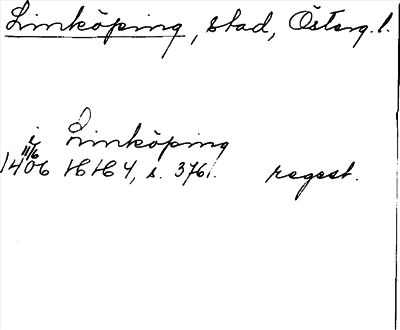 Linköping, stad, Österg. l.
i Linköping
1406 11/6 HH 4, s. 376. regest.